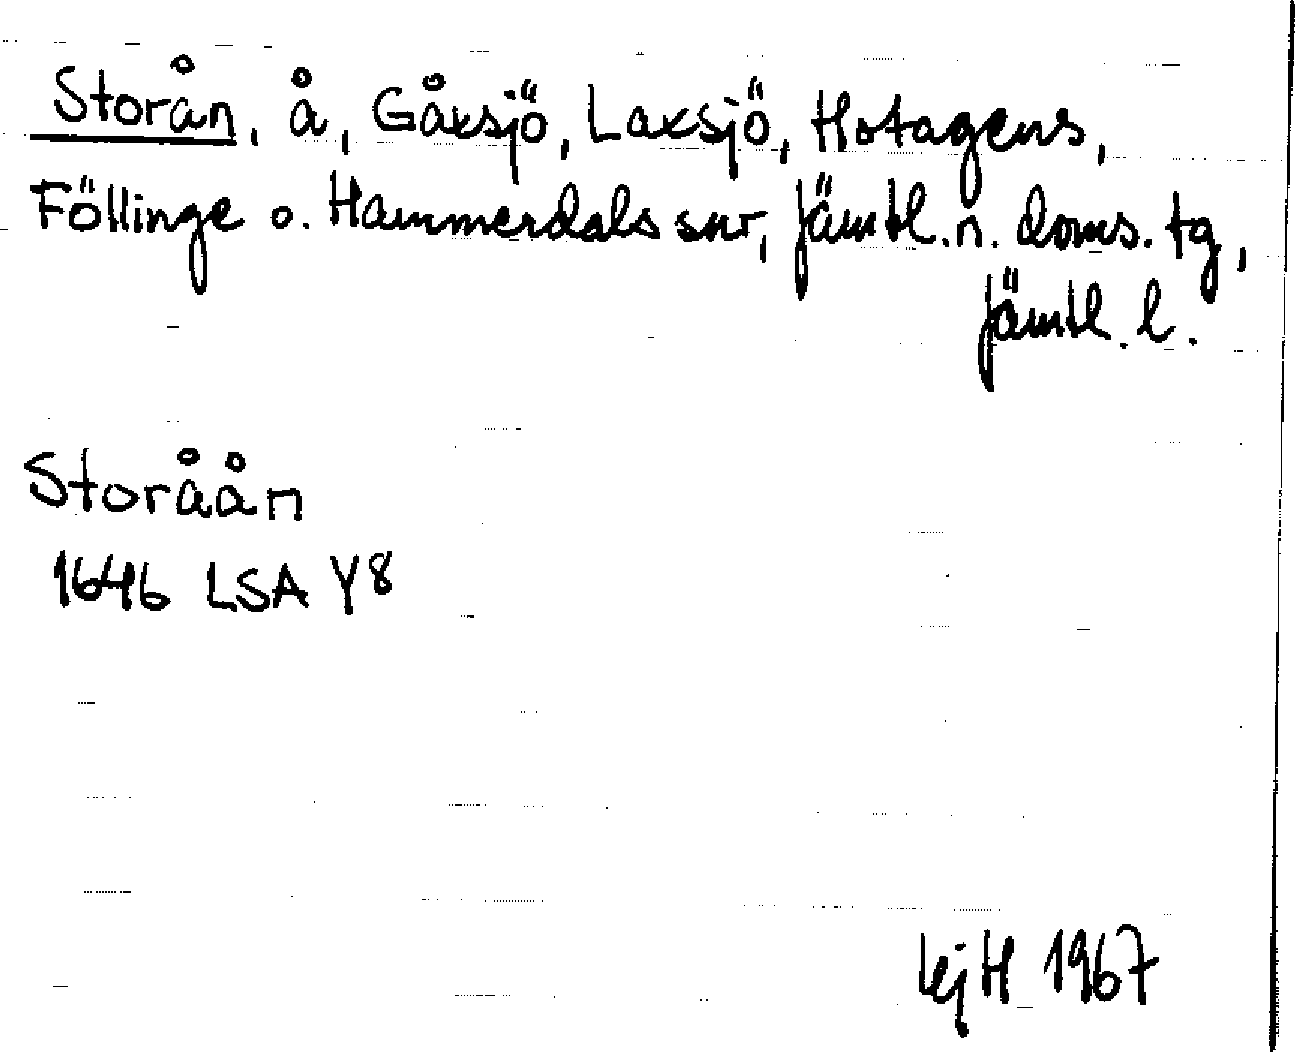 Storån, å, Gåxsjö, Laxsjö, Hotagens,
Föllinge o. Hammerdals snr, Jämtl. n. doms. tg,
Jämtl. l.
Storåån
1646 LSA Y8
KjH 1967